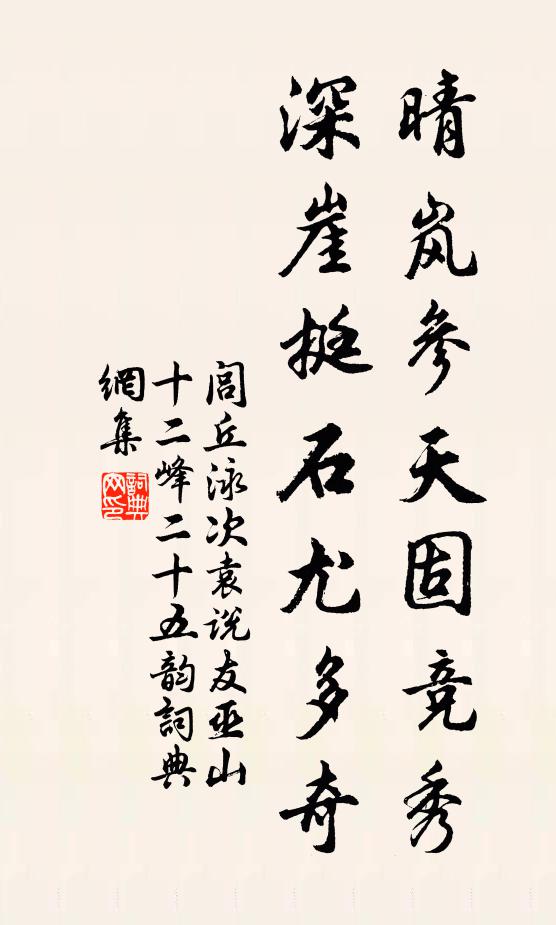 晴岚參天固竞秀
深崖挺石尤多奇
闾丘泳次袁说友巫山
十二峰二十五韵詞典
網集
詞典
网印